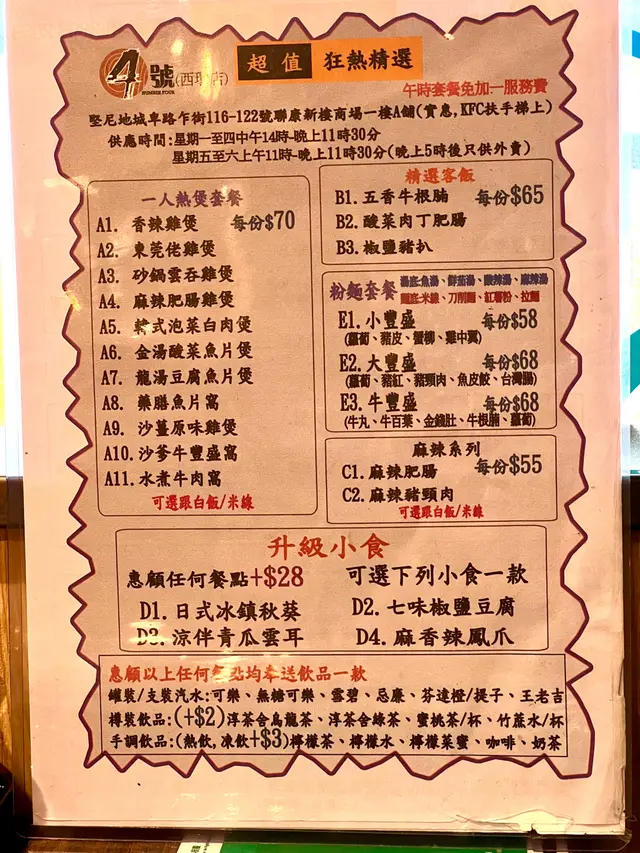 4號(西環店)
NUMBER FOUR
超值 狂熱精選
午時套餐免加一服務費
堅尼地城卑路乍街116-122號聯康新樓商場一樓A舖(實惠,KFC扶手梯上)
供應時間:星期一至四中午14時-晚上11時30分
星期五至六上午11時-晚上11時30分(晚上5時後只供外賣)
一人熱煲套餐
A1. 香辣雞煲 每份$70
A2. 東莞佬雞煲
A3. 砂鍋雲吞雞煲
A4. 麻辣肥腸雞煲
A5. 韓式泡菜白肉煲
A6. 金湯酸菜魚片煲
A7. 龍湯豆腐魚片煲
A8. 藥膳魚片窩
A9. 沙薑原味雞煲
A10. 沙爹牛豐盛窩
A11. 水煮牛肉窩
可選跟白飯/米線
精選客飯
B1. 五香牛根腩 每份$65
B2. 酸菜肉丁肥腸
B3. 椒鹽豬扒
粉麵套餐 湯底:魚湯、鮮茄湯、酸辣湯、麻辣湯
麵底:米線、刀削麵、紅薯粉、拉麵
E1. 小豐盛 每份$58
(蘿蔔、豬皮、蟹柳、雞中翼)
E2. 大豐盛 每份$68
(蘿蔔、豬紅、豬頸肉、魚皮餃、台灣腸)
E3. 牛豐盛 每份$68
(牛丸、牛百葉、金錢肚、牛根腩、蘿蔔)
麻辣系列
C1. 麻辣肥腸 每份$55
C2. 麻辣豬頸肉
可選跟白飯/米線
升級小食
惠顧任何餐點+$28 可選下列小食一款
D1. 日式冰鎮秋葵 D2. 七味椒鹽豆腐
D3. 涼伴青瓜雲耳 D4. 麻香辣鳳爪
惠顧以上任何餐點均奉送飲品一款
罐裝/支裝汽水:可樂、無糖可樂、雪碧、忌廉、芬達橙/提子、王老吉
樽裝飲品:(+$2)淳茶舍烏龍茶、淳茶舍綠茶、蜜桃茶/杯、竹蔗水/杯
手調飲品:(熱飲,凍飲+$3)檸檬茶、檸檬水、檸檬菜蜜、咖啡、奶茶